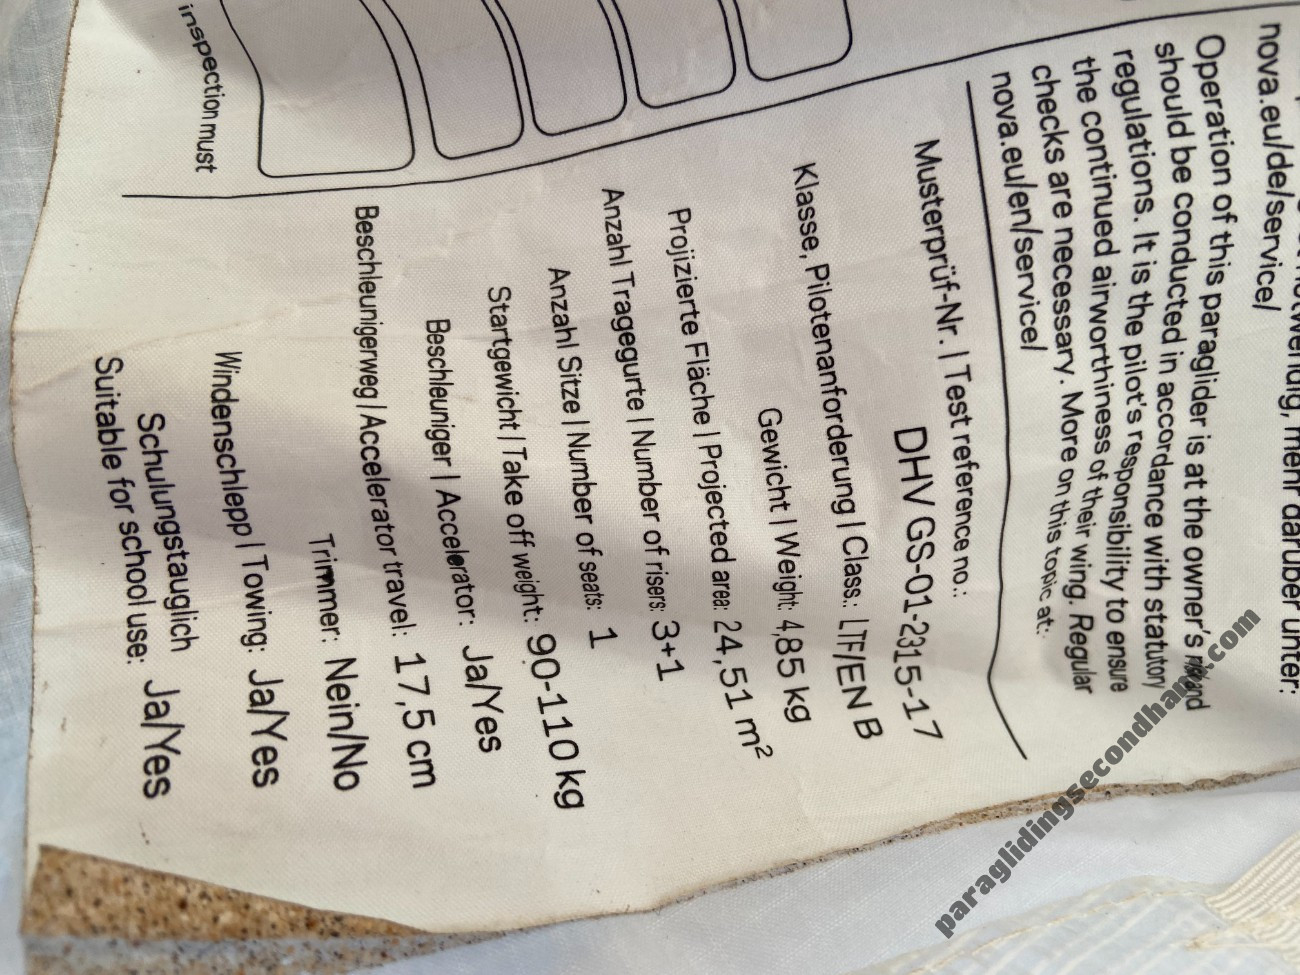 nova.eu/de/service/
Operation of this paraglider is at the owner's and
should be conducted in accordance with statutory
regulations. It is the pilot's responsibility to ensure
the continued airworthiness of their wing. Regular
checks are necessary. More on this topic at:
nova.eu/en/service/
Musterprüf-Nr. | Test reference no.:
DHV GS-01-2315-17
Klasse, Pilotenanforderung | Class.: LTF/EN B
Gewicht | Weight: 4,85 kg
Projizierte Fläche | Projected area: 24,51 m²
Anzahl Tragegurte | Number of risers: 3+1
Anzahl Sitze | Number of seats: 1
Startgewicht | Take off weight: 90-110 kg
Beschleuniger | Accelerator: Ja/Yes
Beschleunigerweg | Accelerator travel: 17,5 cm
Trimmer: Nein/No
Windenschlepp | Towing: Ja/Yes
Schulungstauglich
Suitable for school use: Ja/Yes
inspection must
paraglidingsecondhand.com